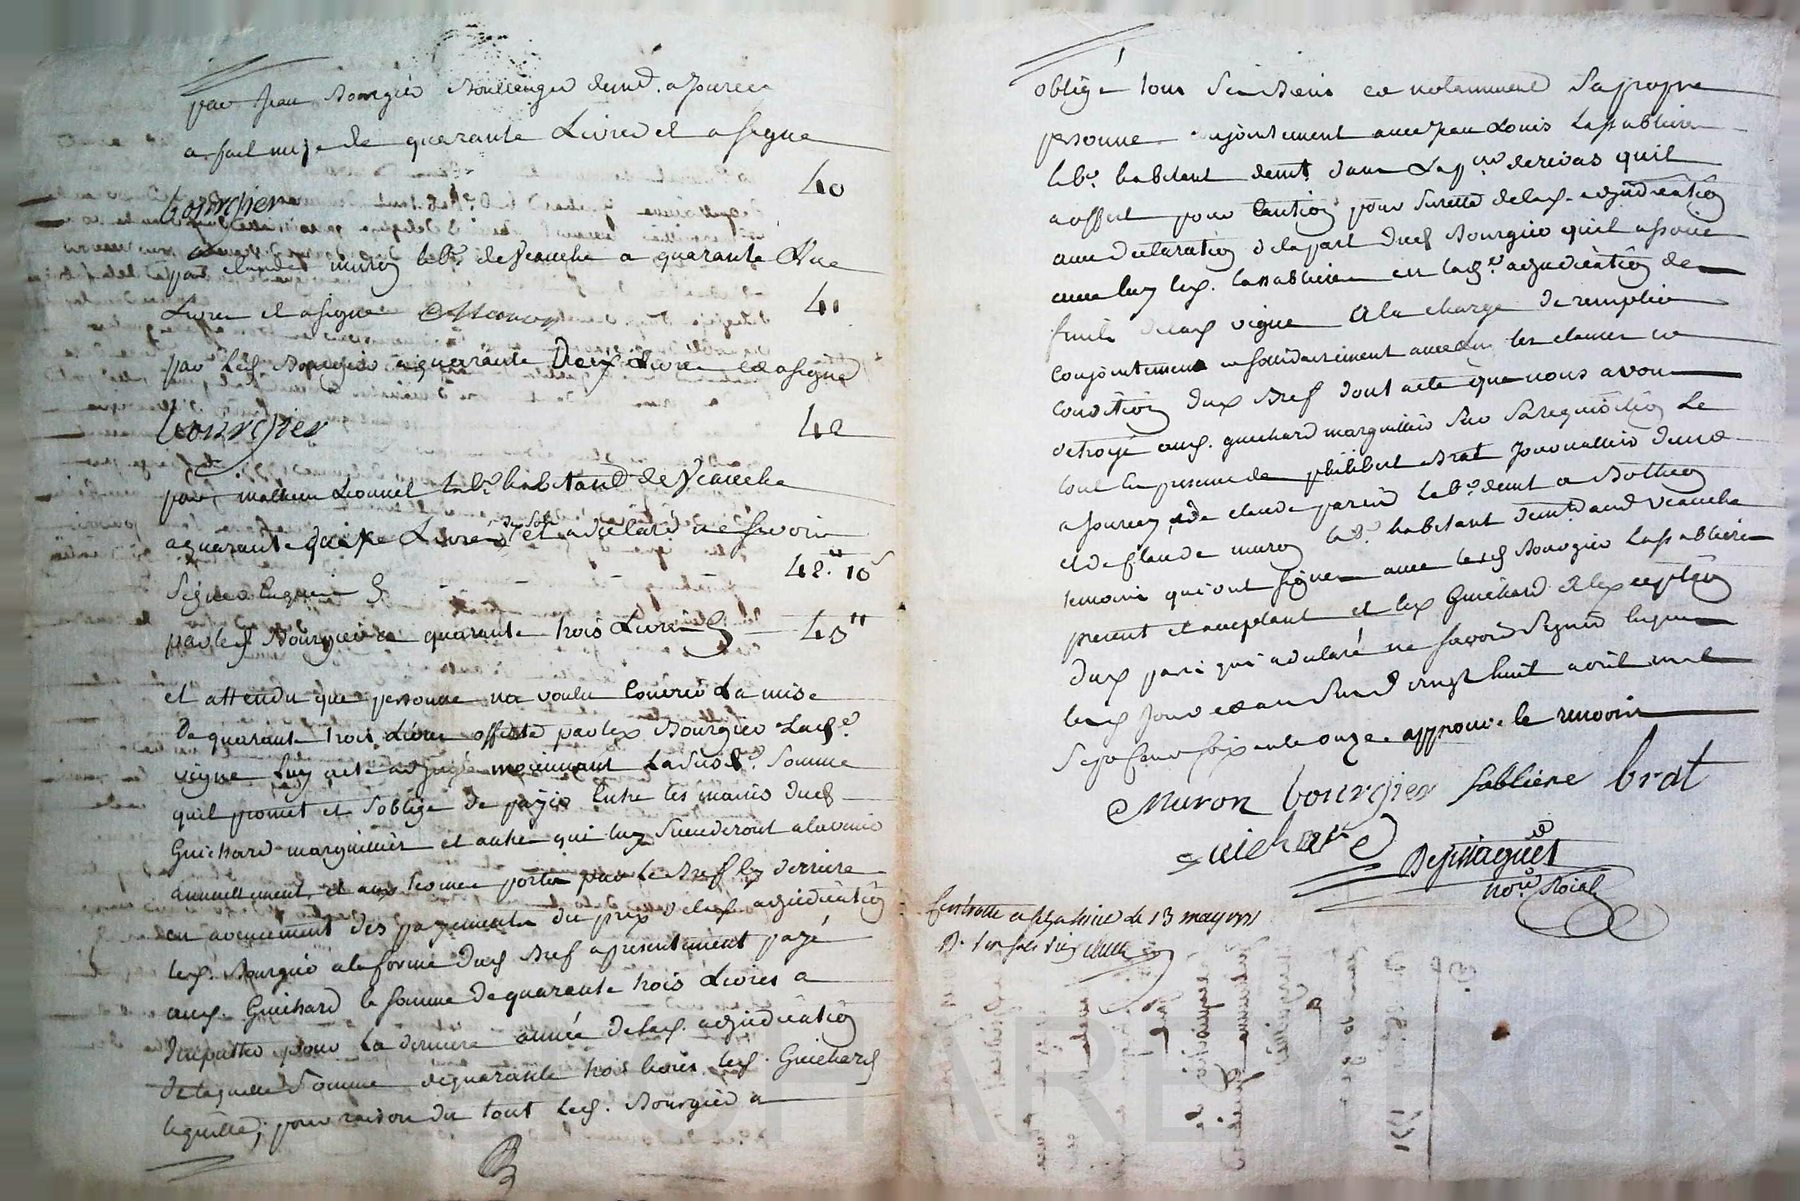 par Jean Bourgier Boullanger demt. a fourcu
a fait mize de quarante Livres et a signe
40
bourgier
par claude muron labr. de Veauche a quarante Une
Livres et a signe Muron
41
par led. Bourgier a quarante Deux Livres et a signe
42
bourgier
par mathieu Lionnet labr. habitand de Veauche
a quarante deux Livres dix sols et a déclaré ne savoir
Signer Enquis
42" 10s
par led. Bourgier a quarante trois Livres
43"
et attendu que personne na voulu Couvrir La mise
De quarante trois Livres offerte par led. Bourgier Lad.
vigne Luy a été adjugée moiennant La susd. Somme
quil promet et soblige de payer Entre les mains dud.
Guichard marguillier et autre qui luy succederont a lavenir
annuellement et aux termes portés par le Bref la derniere
en avencement des payements du prix de lad. adjudication
led. Bourgier a la forme dud. Bref a presentement payé
aud. Guichard la somme de quarante trois Livres a
Imputter pour La derniere année de lad. adjudication
De laquelle Somme de quarante trois livres led. Guichard
le quitte, pour raison du tout Led. Bourgier a
obligé tous ses Biens et notamment sa propre
personne conjointement avec Jean Louis Lasabliere
labr. habitant demt. dans La par. de rivas quil
a offert pour Caution pour Surette de lad. adjudication
avec declaration de la part dud. Bourgier quil associe
avec luy led. Lasabliere en lad. adjudication de
fruits de lad. vigne A la charge de remplir
conjointement et solidairement avec Luy les clauses et
condition dud. Bref dont acte que nous avons
octroyé aud. guichard marguillier sur sa requisition Le
tout En presence de philibert Brat
a fourcu, de claude parin labr. demt. a Bothéon
et de Claude muron labr. habitant demt. aud. Veauche
temoins qui ont signe avec lesd. Bourgier Lasabliere
present et acceptant et led. Guichard a lexception
dud. parin qui a declaré ne savoir Signer Enquis
lesd. Jour et an Lund vingt huit avril mil
sept cent soixante onze. approuvé le renvoi
Muron bourgier sabliere brat
guichard
Depinaguet
nore. Roial
Controlle a le 13 may 1771
CHAREYRON